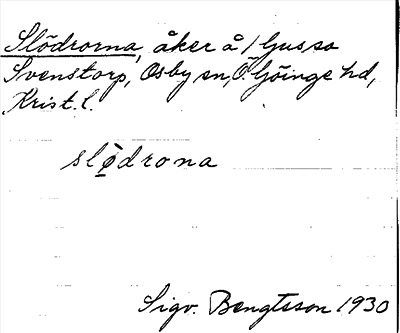 Slödrorna, åker å 1 Ljusso
Svenstorp, Osby sn, Ö. Göinge hd,
Krist. l.
slòdrona
Sigv. Bengtsson 1930